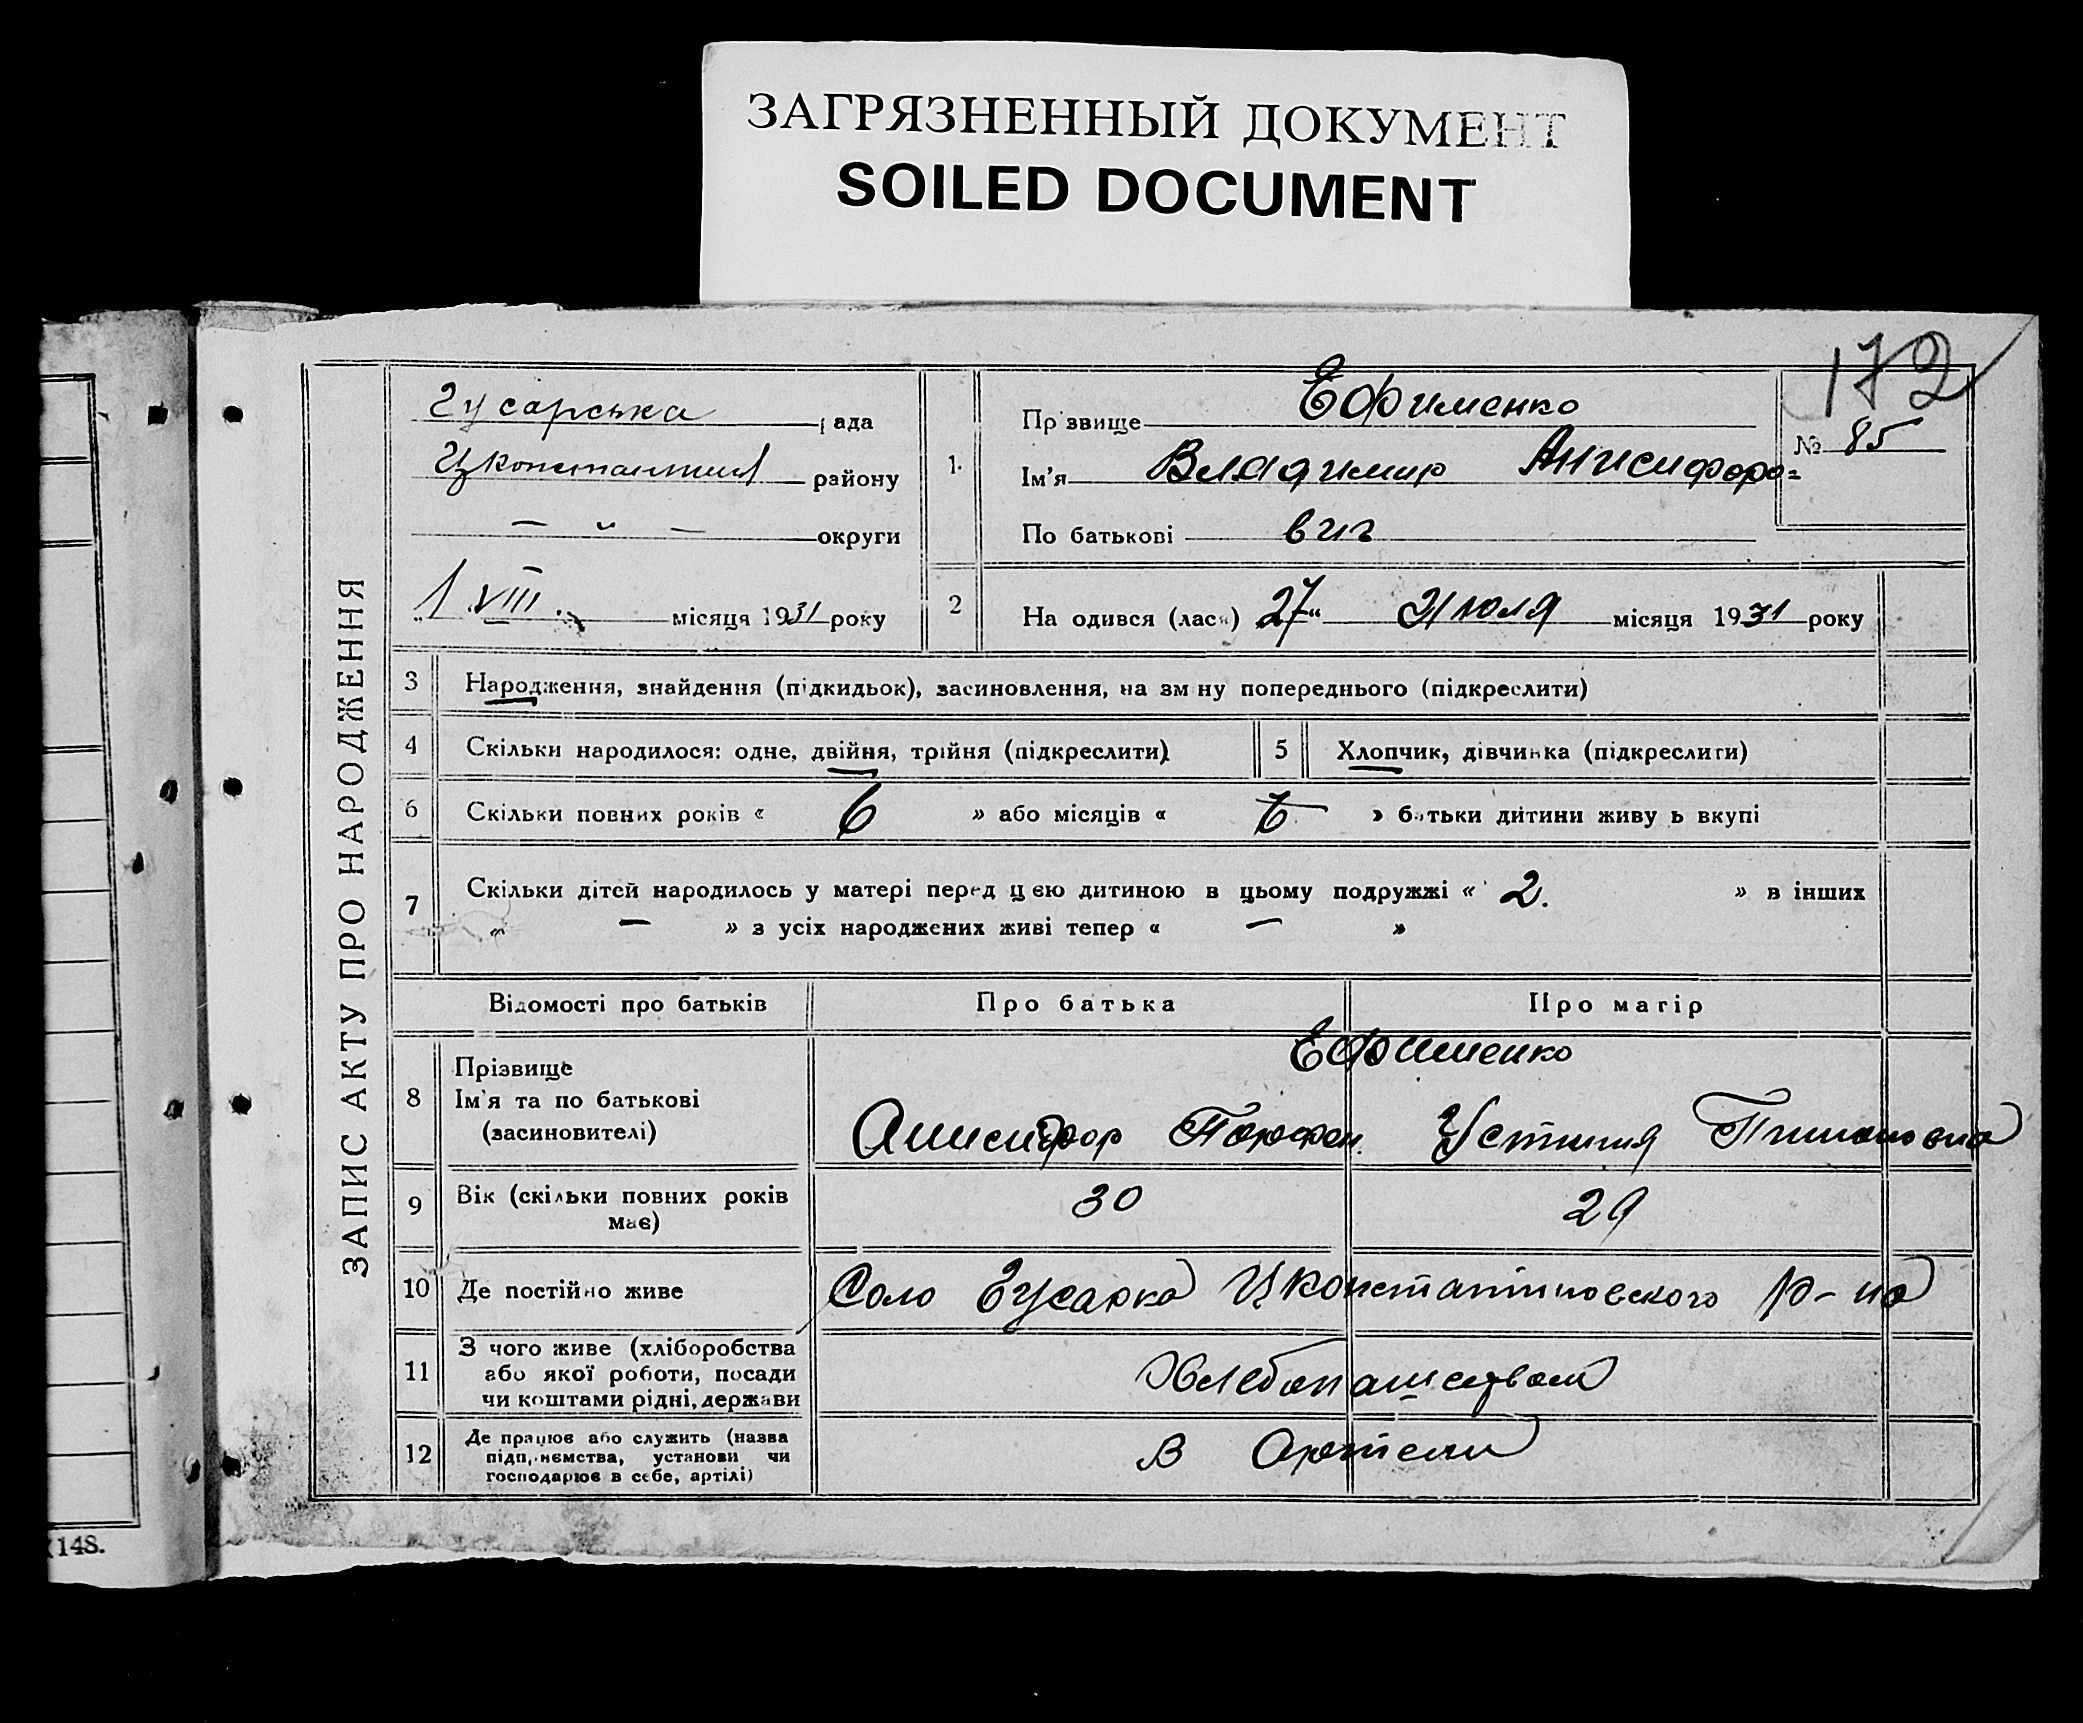 ЗАГРЯЗНЕННЫЙ ДОКУМЕНТ
SOILED DOCUMENT
172
ЗАПИС АКТУ ПРО НАРОДЖЕННЯ
Гусарська рада
району
— „ — округи
1 VIII. місяця 1931 року
1. Прізвище Ефименко
№ 85
Ім'я Владимир Анисифоро=
По батькові вич
2 На одився (лась) 27 Июля місяця 1931 року
3 Народження, знайдення (підкидьок), засиновлення, на зміну попереднього (підкреслити)
4 Скільки народилося: одне, двійня, трійня (підкреслити)
5 Хлопчик, дівчинка (підкреслити)
6 Скільки повних років « 6 » або місяців « » батьки дитини живу ь вкупі
7 Скільки дітей народилось у матері перед цією дитиною в цьому подружжі « 2. » в інших
« — » з усіх народжених живі тепер « — »
Відомості про батьків Про батька Про матір
Ефименко
8 Прізвище
Ім'я та по батькові
(засиновителі)
Анисифор Парфен. Устиния
9 Вік (скільки повних років
має)
30 29
10 Де постійно живе Село Гусарка Цконстантиновского р-на
11 З чого живе (хліборобства
або якої роботи, посади
чи коштами рідні, держави
Хлебопашеством
12 Де працює або служить (назва
підприємства, установи чи
господарює в себе, артілі)
В Артели
148.